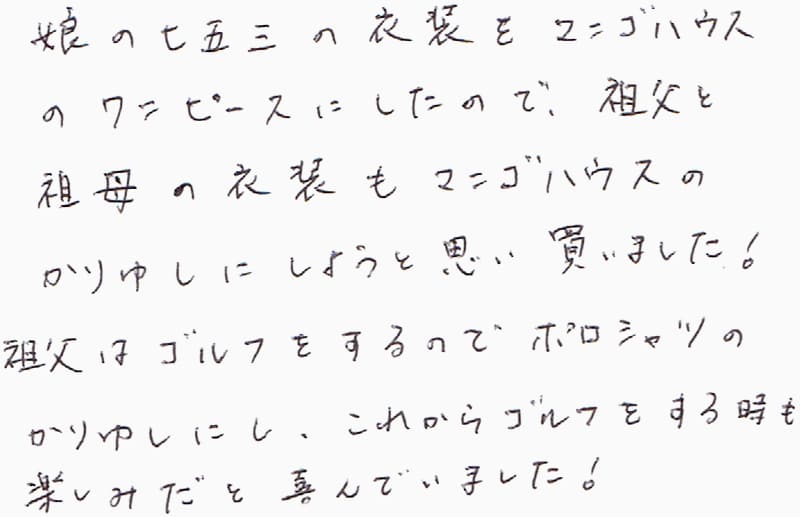 娘の七五三の衣装をマンゴハウス
のワンピースにしたので、祖父と
祖母の衣装もマンゴハウスの
かりゆしにしようと思い買いました!
祖父はゴルフをするのでポロシャツの
かりゆしにし、これからゴルフをする時も
楽しみだと喜んでいました!